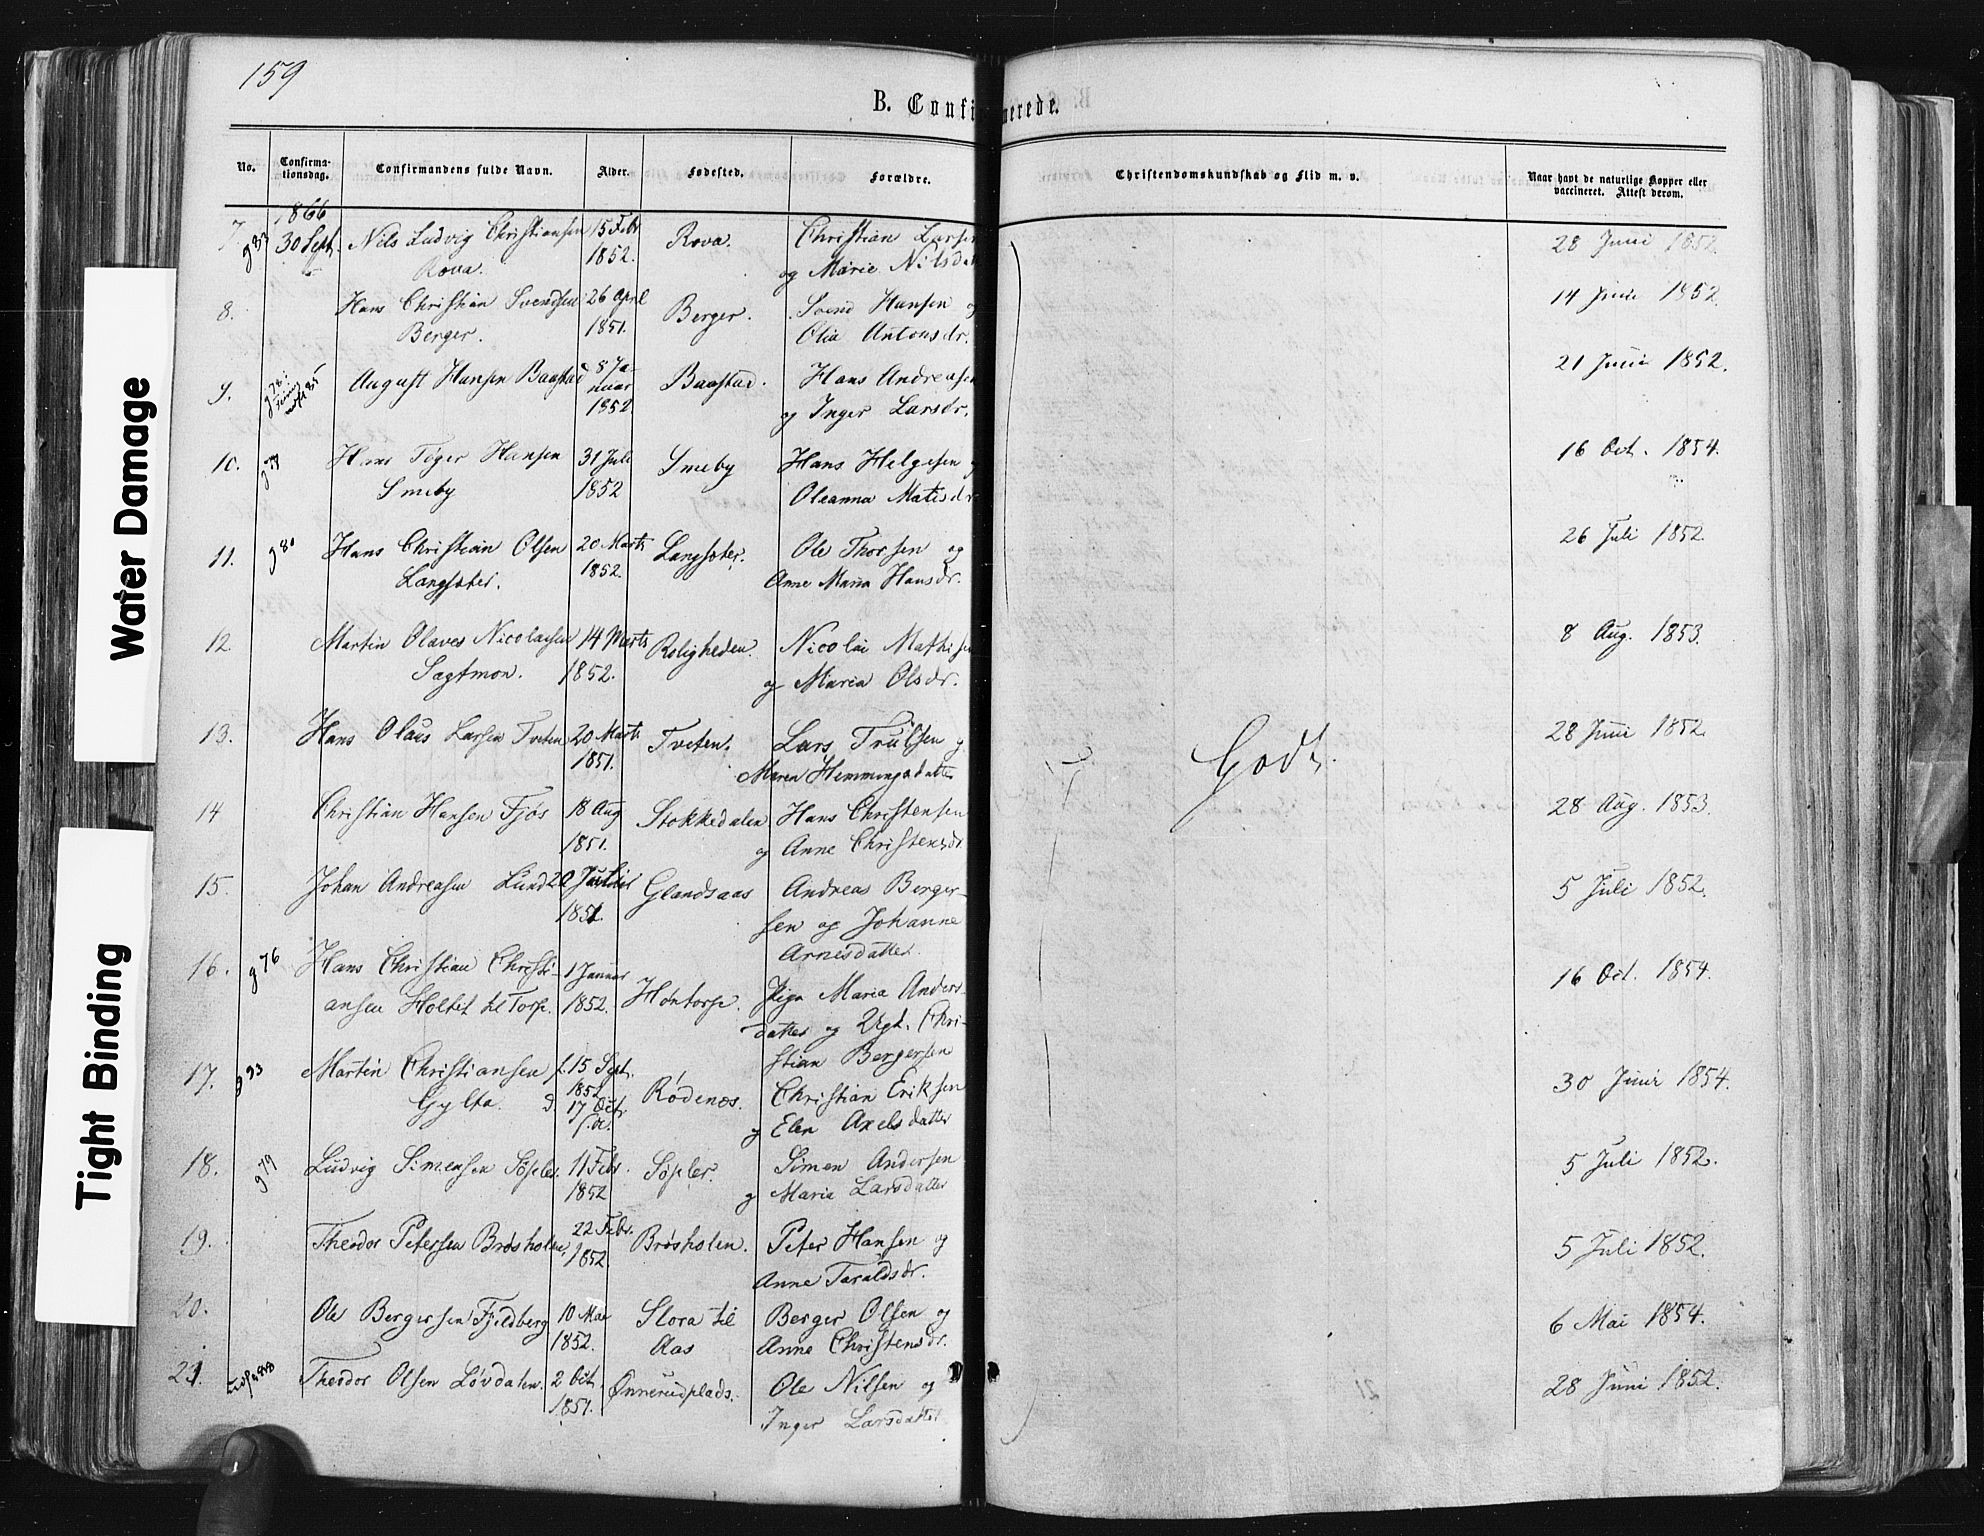 159
B. Confirmerede.
No. Confirmationsdag. Confirmandens fulde Navn. Alder. Fødested. Forældre. Christendomskundskab og Flid m. v. Naar havt de naturlige Kopper eller vaccineret. Attest derom.
1866
7. g 83 30 Sept. Nils Ludvig Christiansen 15 Febr Rova. Christian Larsen 28 Juni 1852.
Rova. 1852. og Marie Nilsdat
8. Hans Christian Svendsen 26 April Berger. Svend Hansen og 14 Juni 1852.
Berger. 1851. Olia Antonsdr.
9. August Hansen Baastad 8 Ja- Baastad. Hans Andreasen 21 Juni 1852.
nuar og Inger Larsdr.
1852.
10. Hans Tøger Hansen 31 Juli Smeby Hans Helgesen og 16 Oct. 1854.
Smeby 1852 Oleanna Matisdr
11. g 80 Hans Christian Olsen 20 Marts Langsæter. Ole Thorsen og 26 Juli 1852.
Langsæter. 1852. Anne Maria Hansdr.
12. Martin Olaves Nicolaisen 14 Marts Roligheden. Nicolai Mathisen 8 Aug. 1853.
Sagtmon. 1852. og Maria Olsdr.
13. Hans Olaus Larsen Tveten 20 Marts Tveten. Lars Trulsen og Godt. 28 Juni 1852.
1851. Maren Hemmingsdatter
14 Christian Hansen Fjøs 18 Aug Stokkedalen Hans Christensen 28 Aug. 1853.
1851. og Anne Christensdr.
15. Johan Andreasen Lund 20 Glandsaas Andreas Berger- 5 Juli 1852.
1851. sen og Johanne
Arnesdatter.
16. g 76 Hans Christian Christi- 1 Januar Høntorp. Pige Maria Anders- 16 Oct. 1854.
ansen Holtet til Torp. 1852. datter og Ugt. Chri-
stian Bergersen
17. g 93 Martin Christiansen f. 15 Sept. Rødenæs. Christian Eriksen 30 Juni 1854.
Gylta. d. 17 Oct. og Elen Axelsdatter
18. g 79 Ludvig Simensen Søpler. 11 Febr. Søpler. Simen Andersen 5 Juli 1852.
1852 og Maria Larsdatter
19. Theodor Petersen Brøsholen. 22 Febr. Brøsholen. Peter Hansen og 5 Juli 1852.
1852. Anne Taraldsdr.
20. Ole Bergersen Fjeldberg 10 Mai Slora til Berger Olsen og 6 Mai 1854.
1852. Aas Anne Christensdr.
21. Theodor Olsen Løvdalen. 2 Oct. Ønnerudplads. Ole Nilsen og 28 Juni 1852.
1851. Inger Larsdatter
Water Damage
Tight Binding